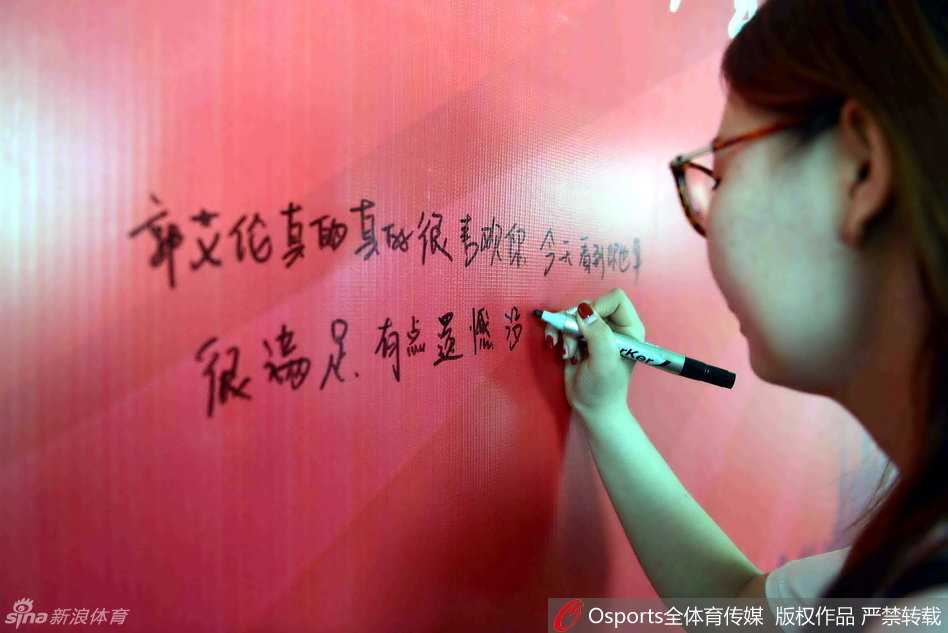 郭艾伦真的真的很喜欢你 今天看到
很满足 有点遗憾 没
rker
sina新浪体育
Osports全体育传媒 版权作品 严禁转载